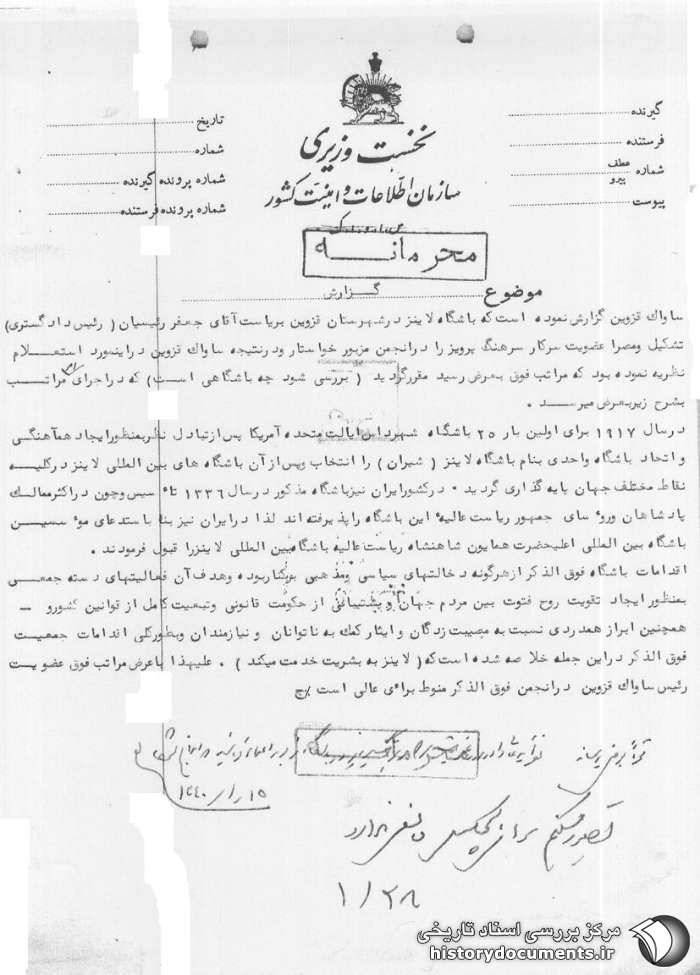 نخست وزیری
سازمان اطلاعات و امنیت کشور
س.ا.و.ا.ک
گیرنده
فرستنده
شماره عطف پیرو
پیوست
تاریخ
شماره
شماره پرونده گیرنده
شماره پرونده فرستنده
محرمانه
موضوع گزارش
ساواك قزوین گزارش نموده است که باشگاه لاینز در شهرستان قزوین بریاست آقای جعفر رئیسیان (رئیس دادگستری)
تشکیل ومصرا عضویت سرکار سرهنگ پرویز را در انجمن مزبور خواستار ودر نتیجه ساواك قزوین در اینمورد استعلام
نظریه نموده بود که مراتب فوق بعرض رسید مقرر گردید (بررسی شود چه باشگاهی است) که در اجرای مراتب
بشرح زیر بعرض میرسد .
در سال ۱۹۱۷ برای اولین بار ۲۵ باشگاه شهر دالاس ایالت متحده آمریکا پس از تبادل نظر بمنظور ایجاد هم آهنگی
و اتحاد باشگاه واحدی بنام باشگاه لاینز (شیران) را انتخاب وپس از آن باشگاه های بین المللی لاینز در کلیه
نقاط مختلف جهان پایه گذاری گردید . در کشور ایران نیز باشگاه مذکور در سال ۱۳۳۶ تاء سیس وچون در اکثر ممالك
پادشاهان وروء سای جمهور ریاست عالیه این باشگاه را پذیرفته اند لذا در ایران نیز بنا باستدعای موء سسین
باشگاه بین المللی اعلیحضرت همایون شاهنشاه ریاست عالیه باشگاه بین المللی لاینز را قبول فرمودند .
اقدامات باشگاه فوق الذکر از هرگونه دخالتهای سیاسی ومذهبی برکنار بوده وهدف آن فعالیتهای دسته جمعی
بمنظور ایجاد تقویت روح فتوت بین مردم جهان و پشتیبانی از حکومت قانونی وتبعیت کامل از قوانین کشور و -
همچنین ابراز همدردی نسبت به مصیبت زدگان و ایثار کمك به ناتوانان و نیازمندان وبطور کلی اقدامات جمعیت
فوق الذکر در این جمله خلاصه شده است که (لاینز به بشریت خدمت میکند) . علیهذا با عرض مراتب فوق عضویت
رئیس ساواك قزوین در انجمن فوق الذکر منوط برای عالی است
تصور میکنم برای هیچکس مانعی ندارد
۱/۲۸
مرکز بررسی اسناد تاریخی
historydocuments.ir